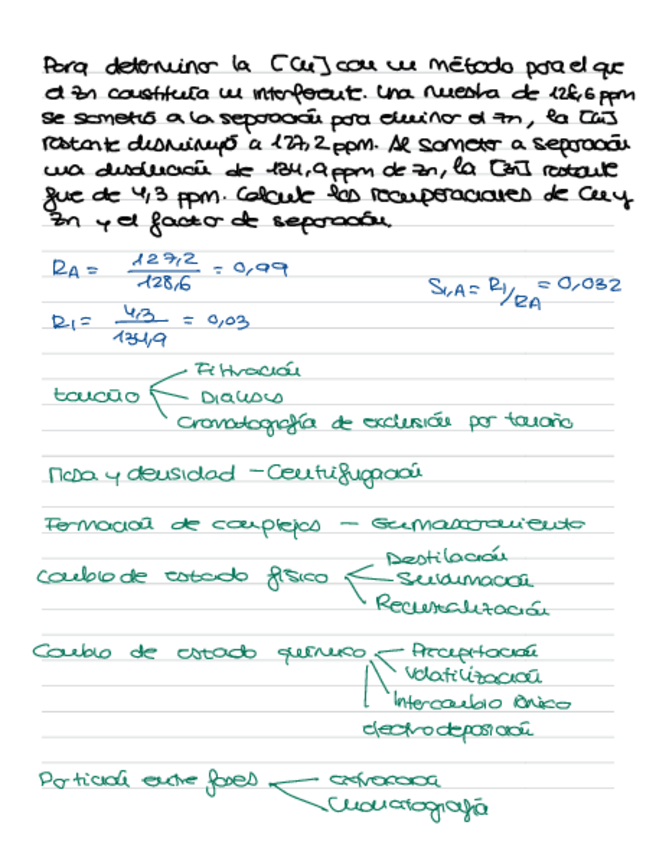 Para determinar la [Cu] con un método para el que
el Zn constituía un interferente. Una muestra de 128,6 ppm
se sometió a la separación para eliminar el Zn, la [Cu]
restante disminuyó a 127,2 ppm. Al someter a separación
una disolución de 134,9 ppm de Zn, la [Zn] restante
fue de 4,3 ppm. Calcule las recuperaciones de Cu y
Zn y el factor de separación.
RA = 127,2 / 128,6 = 0,99
SI,A = RI/RA = 0,032
RI = 4,3 / 134,9 = 0,03
Filtración
tamaño Diálisis
Cromatografía de exclusión por tamaño
Masa y densidad - Centrifugación
Formación de complejos - Enmascaramiento
Destilación
Cambio de estado físico Sublimación
Recristalización
Cambio de estado químico Precipitación
Volatilización
Intercambio iónico
electrodeposición
Partición entre fases extracción
Cromatografía